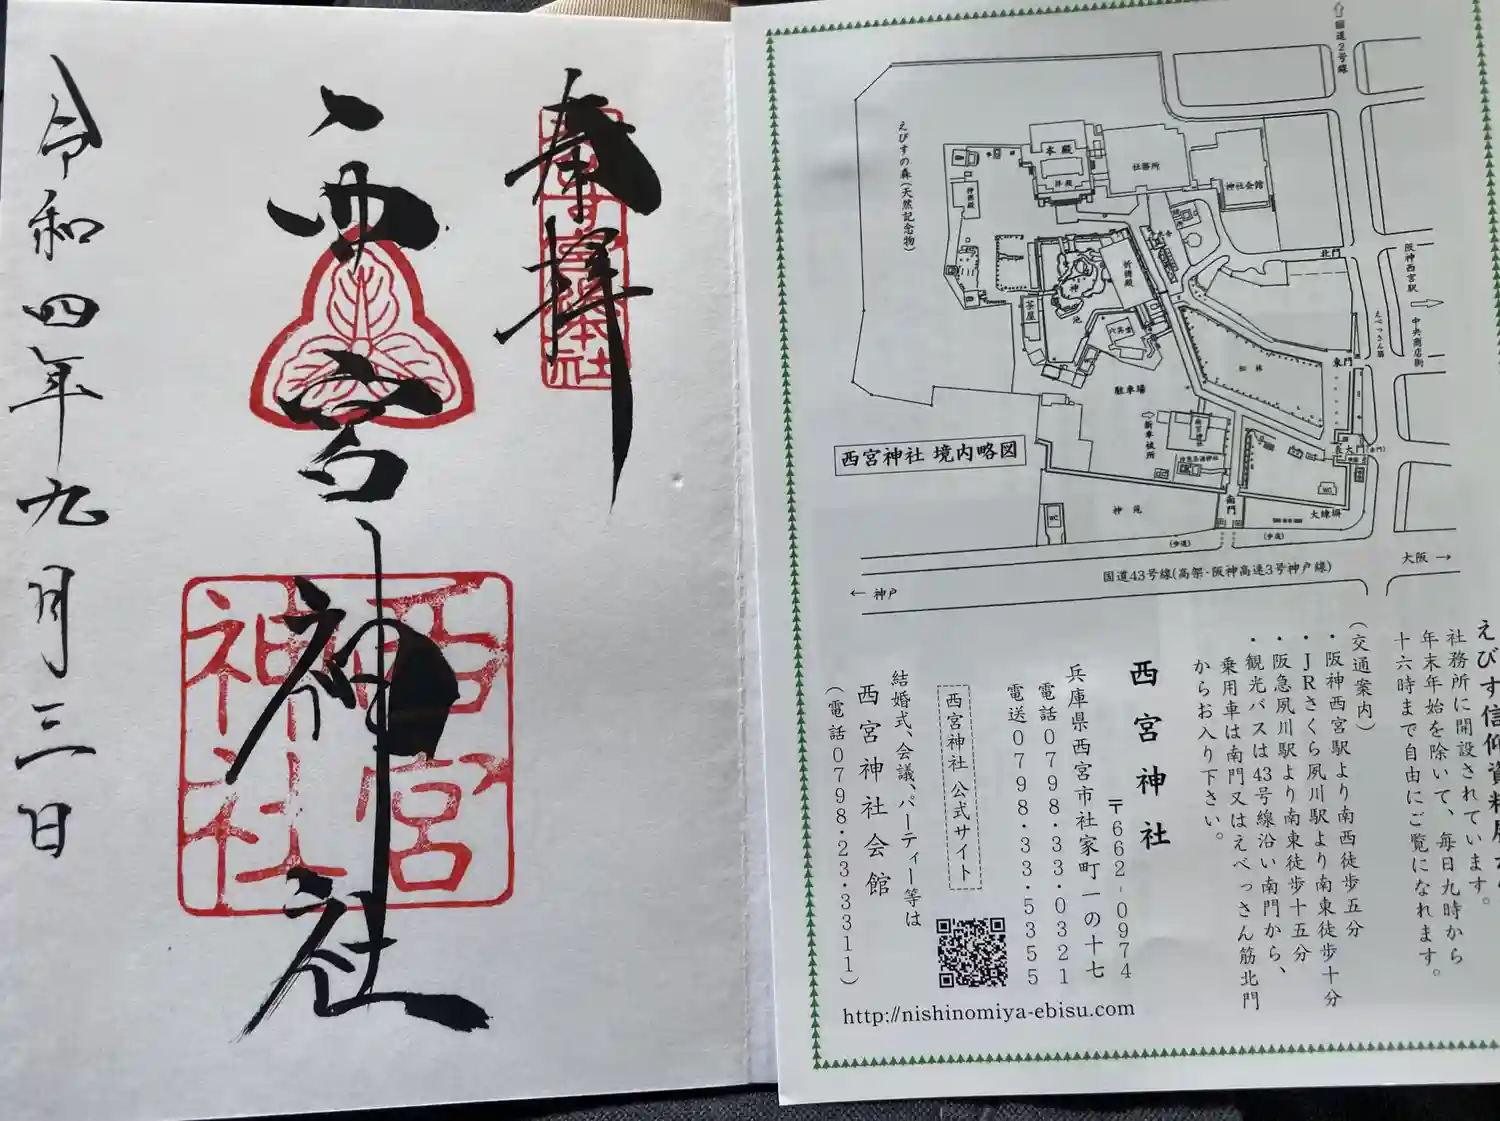 奉拝
西宮神社
西宮神社
令和四年九月三日
国道2号線
えびすの森(天然記念物)
本殿
拝殿
社務所
神社会館
神池
祈祷殿
茶屋
六英堂
駐車場
北門
東門
南門
表大門
大練塀
神苑
WC
WC
(歩道)
(歩道)
阪神西宮駅
中央商店街
えべっさん筋
西宮神社 境内略図
国道43号線(高架・阪神高速3号神戸線)
← 神戸
大阪 →
社務所に開設されています。
年末年始を除いて、毎日九時から
十六時まで自由にご覧になれます。
(交通案内)
・阪神西宮駅より南西徒歩五分
・JRさくら夙川駅より南東徒歩十分
・阪急夙川駅より南東徒歩十五分
・観光バスは43号線沿い南門から、
乗用車は南門又はえべっさん筋北門
からお入り下さい。
西宮神社
〒662-0974
兵庫県西宮市社家町一の十七
電話0798・33・0321
電送0798・33・5355
西宮神社 公式サイト
結婚式、会議、パーティー等は
西宮神社会館
(電話0798・23・3311)
http://nishinomiya-ebisu.com